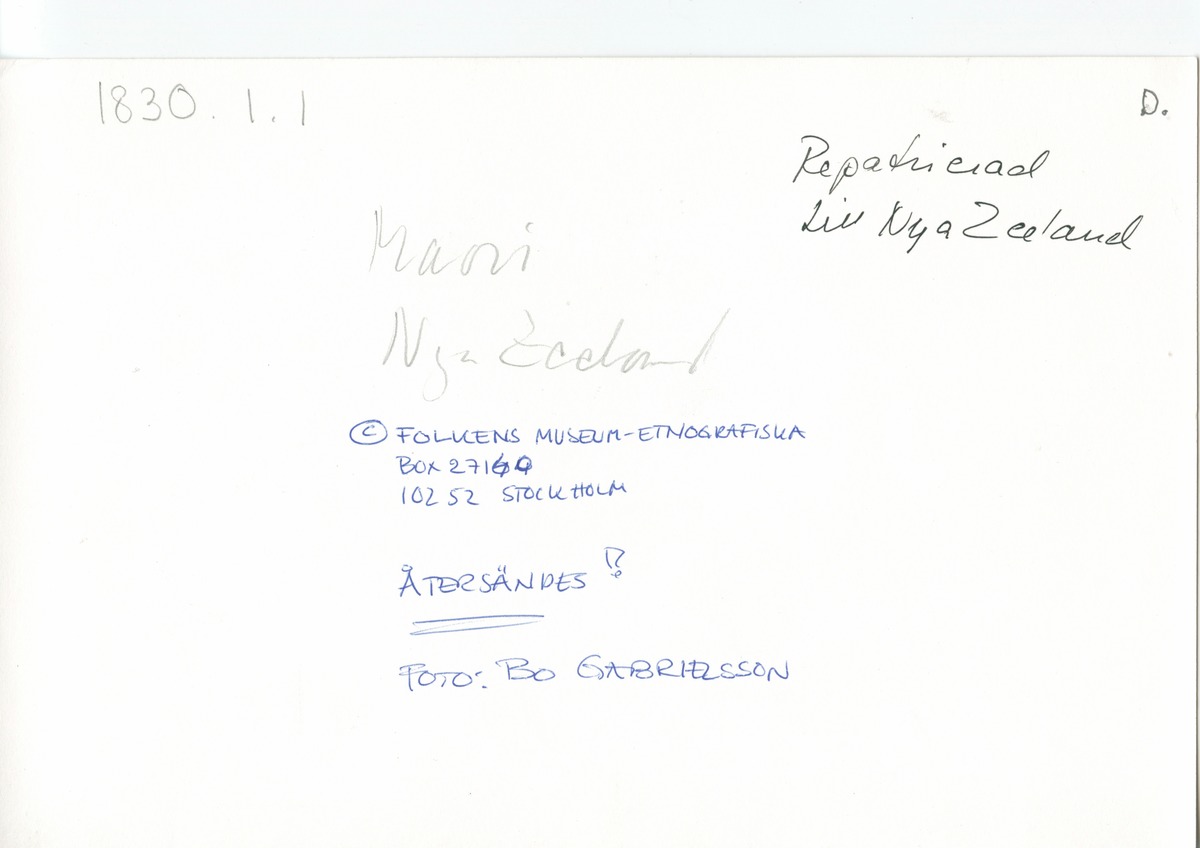 1830. 1. 1
D.
Repatrierad
till Nya Zeeland
Maori
Nya Zeeland
© FOLKENS MUSEUM-ETNOGRAFISKA
BOX 27140
102 52 STOCKHOLM
ÅTERSÄNDES !
FOTO: BO GABRIELSSON